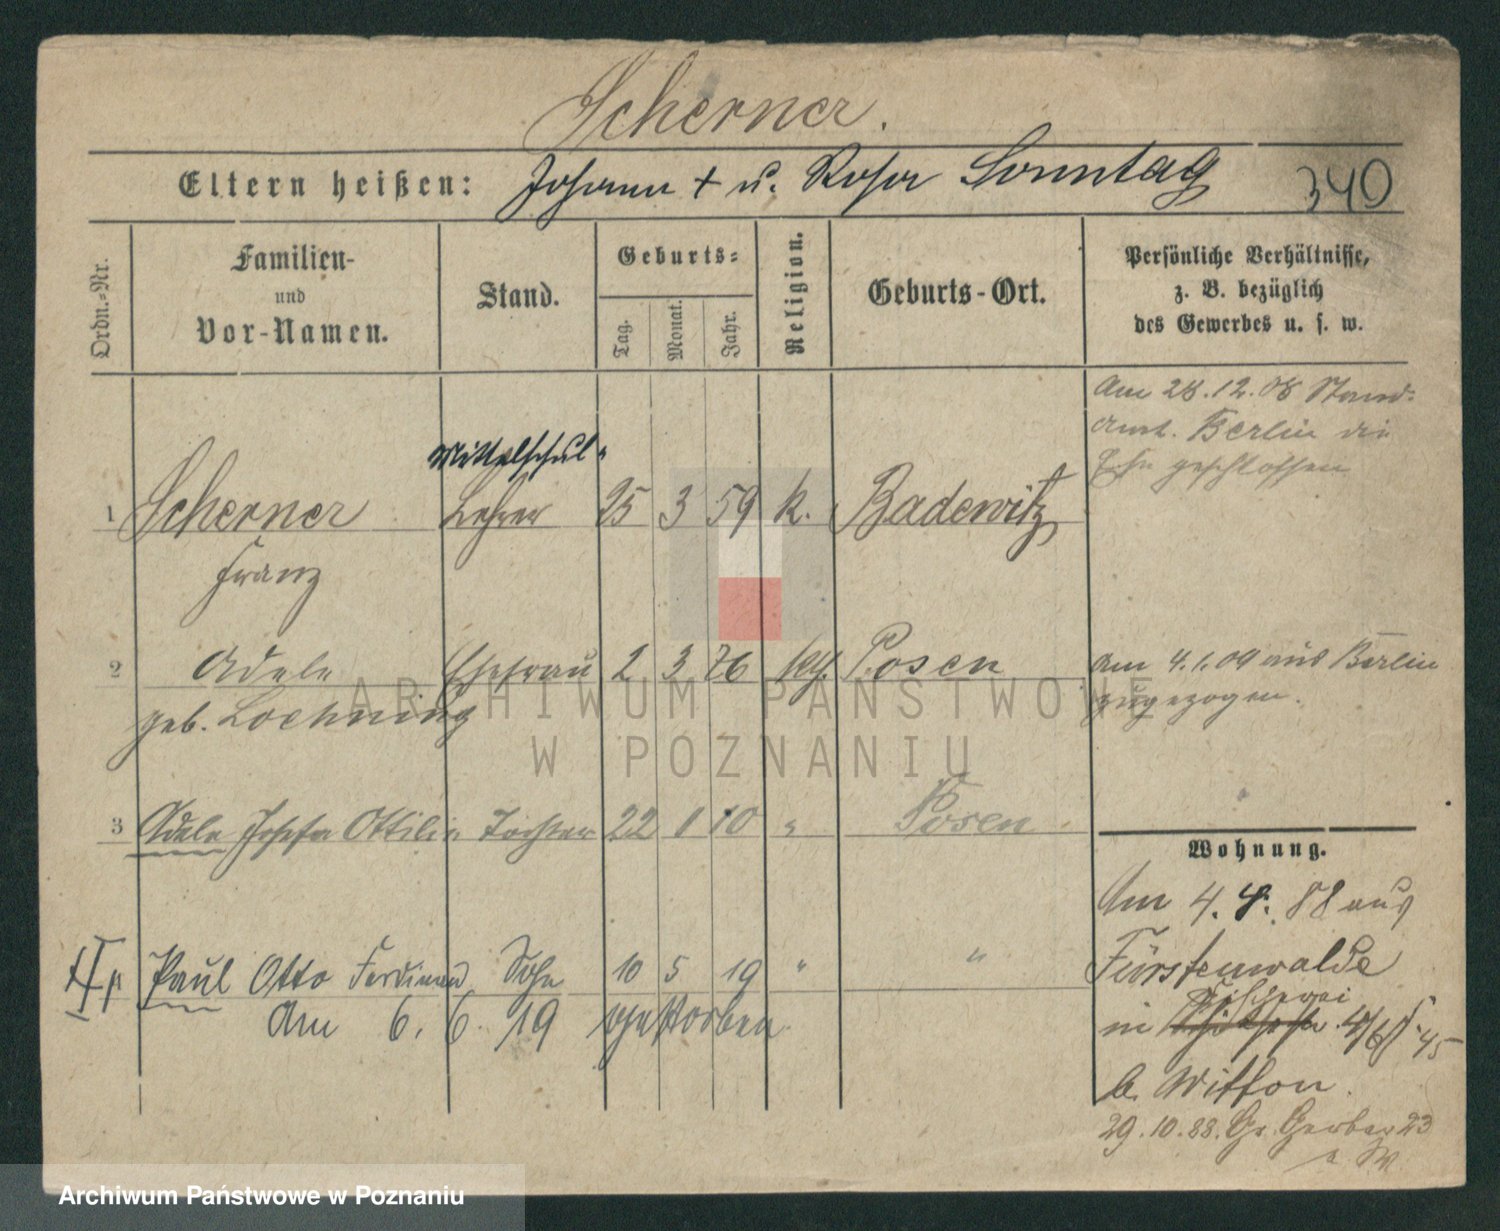 Scherner.
Eltern heißen: Johann + u. Rosa Sonntag 340
Ordn.-Nr.
Familien-
und
Vor-Namen.
Stand.
Geburts-
Tag.
Monat.
Jahr.
Religion.
Geburts-Ort.
Persönliche Verhältnisse,
z. B. bezüglich
des Gewerbes u. s. w.
Am 28.12.08 Stand-
amt. Berlin die
Ehe geschlossen
Mittelschul-
1 Scherner Lehrer 25 3 59 k. Badewitz
Franz
2 Adele Ehefrau 2 3 76 Posen
geb. Loehning
Am 4.1.09 aus Berlin
zugezogen.
3 Adele Josefa Ottilie Tochter 22 1 10 " Posen
Paul Otto Ferdinand Sohn 10 5 19 " "
Am 6. 6. 19 gestorben
Wohnung.
Am 4. 8. 88 aus
Fürstenwalde
Fischerei
in 4/5
b. Witton.
29.10.88. Gr. Gerber 23
ARCHIWUM PAŃSTWOWE
W POZNANIU
Archiwum Państwowe w Poznaniu